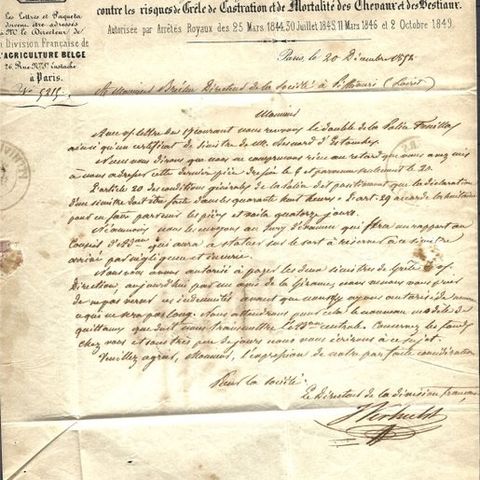 contre les risques de Grêle de Castration et de Mortalité des Chevaux et des Bestiaux.
Autorisée par Arrêtés Royaux des 25 Mars 1844, 30 Juillet 1845, 11 Mars 1846 et 2 Octobre 1849.
Les Lettres et Paquets
doivent être adressés
à Mr le Directeur de
la Division Française de
L'AGRICULTURE BELGE
26, Rue Nve St Eustache
à Paris.
No 5215
Paris, le 20 Décembre 185
A Monsieur Directeur de la Société à Pithiviers (Loiret)
Monsieur
lettre du 17 courant nous recevons le double de la Police
ainsi qu'un certificat de sinistre de M.
Nous vous dirons que nous ne comprenons rien au retard que vous avez mis
à nous adresser cette dernière pièce
L'article 20 des conditions générales de la Police dit positivement que la déclaration
d'un sinistre doit être faite dans les quarante huit heures & l'art. 29 accorde
pour en faire parvenir les pièces et voilà quatorze jours.
nous les envoyons au qui fera un rapport au
Conseil d' qui aura à statuer sur le sort à réserver à ce sinistre
arriéré par négligence et incurie.
Nous vous avons autorisé à payer les deux sinistres de Grêle
Direction, aujourd'hui par un avis de la nous venons vous prier
de ne pas verser les indemnités avant que nous n'y ayons autorisé de nouveau
ce qui ne sera pas long. Nous attendrons pour cela le nouveau modèle de
quittance que doit nous transmettre centrale. Conservez les fonds
chez vous et sous très peu de jours nous vous écrirons à ce sujet.
Veuillez agréer, Monsieur, l'expression de notre parfaite considération
Pour la Société
Le Directeur de la division française